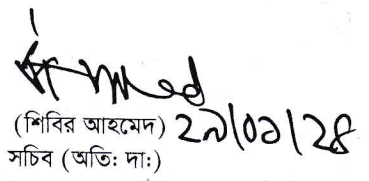 (শিবির আহমেদ) ২৯/০১/২৪
সচিব (অতি: দা:)